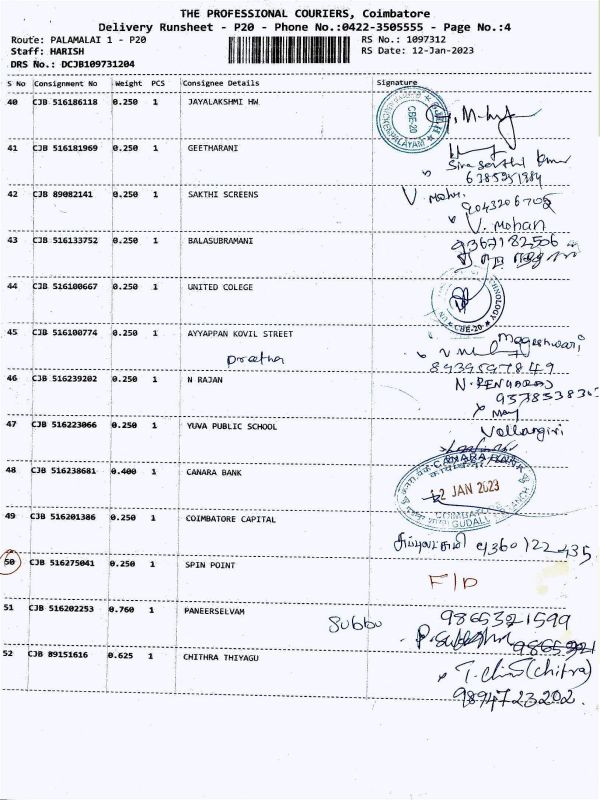 THE PROFESSIONAL COURIERS, Coimbatore
Delivery Runsheet - P20 - Phone No.:0422-3505555 - Page No.:4
Route: PALAMALAI 1 - P20 RS No.: 1097312
Staff: HARISH RS Date: 12-Jan-2023
DRS No.: DCJB109731204
S No Consignment No Weight PCS Consignee Details Signature
40 CJB 516186118 0.250 1 JAYALAKSHMI HW
CBE-20
41 CJB 516181969 0.250 1 GEETHARANI
6385951384
42 CJB 89082141 0.250 1 SAKTHI SCREENS
9043206705
V. Mohan
43 CJB 516133752 0.250 1 BALASUBRAMANI 9367182506
44 CJB 516100667 0.250 1 UNITED COLEGE
CBE-20
45 CJB 516100774 0.250 1 AYYAPPAN KOVIL STREET
Mageshwari
8939597849
46 CJB 516239202 0.250 1 N RAJAN
47 CJB 516223066 0.250 1 YUVA PUBLIC SCHOOL
48 CJB 516238681 0.400 1 CANARA BANK
CANARA BANK
12 JAN 2023
49 CJB 516201386 0.250 1 COIMBATORE CAPITAL
9360122435
50 CJB 516275041 0.250 1 SPIN POINT
F/D
51 CJB 516202253 0.760 1 PANEERSELVAM
Subbu 9865321599
52 CJB 89151616 0.625 1 CHITHRA THIYAGU
(Chitra)
9894723202.